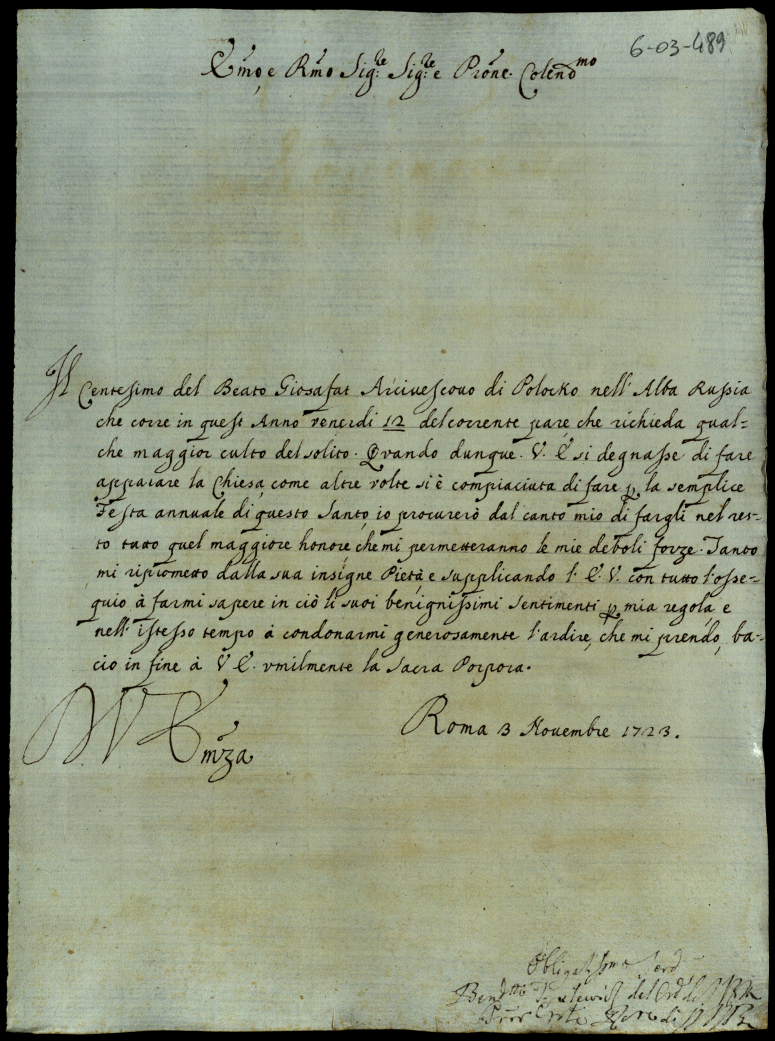 6-03-489
Emo e Rmo Sigre Sigre e Prone Colendmo
Il Centesimo del Beato Giosafat Arciuescouo di Polocko nell' Alba Russia
che corre in quest Anno venerdi 12 del corrente pare che richieda qual=
che maggior culto del solito. Quando dunque V. E. si degnasse di fare
apparare la Chiesa, come altre volte si è compiaciuta di fare p. la semplice
Festa annuale di questo Santo, io procurerò dal canto mio di fargli nel res-
to tutto quel maggiore honore, che mi permetteranno le mie deboli forze. Tanto
mi riprometto dalla sua insigne Pietà, e supplicando l'E. V. con tutto l'osse-
quio à farmi sapere in ciò li suoi benignissimi sentimenti p. mia regola, e
nell' istesso tempo à condonarmi generosamente l'ardire, che mi prendo, ba-
cio in fine à V. E. vmilmente la Sacra Porpora.
Roma 3 Nouembre 1723.
V Emza
Obligatissmo
del Ord. di